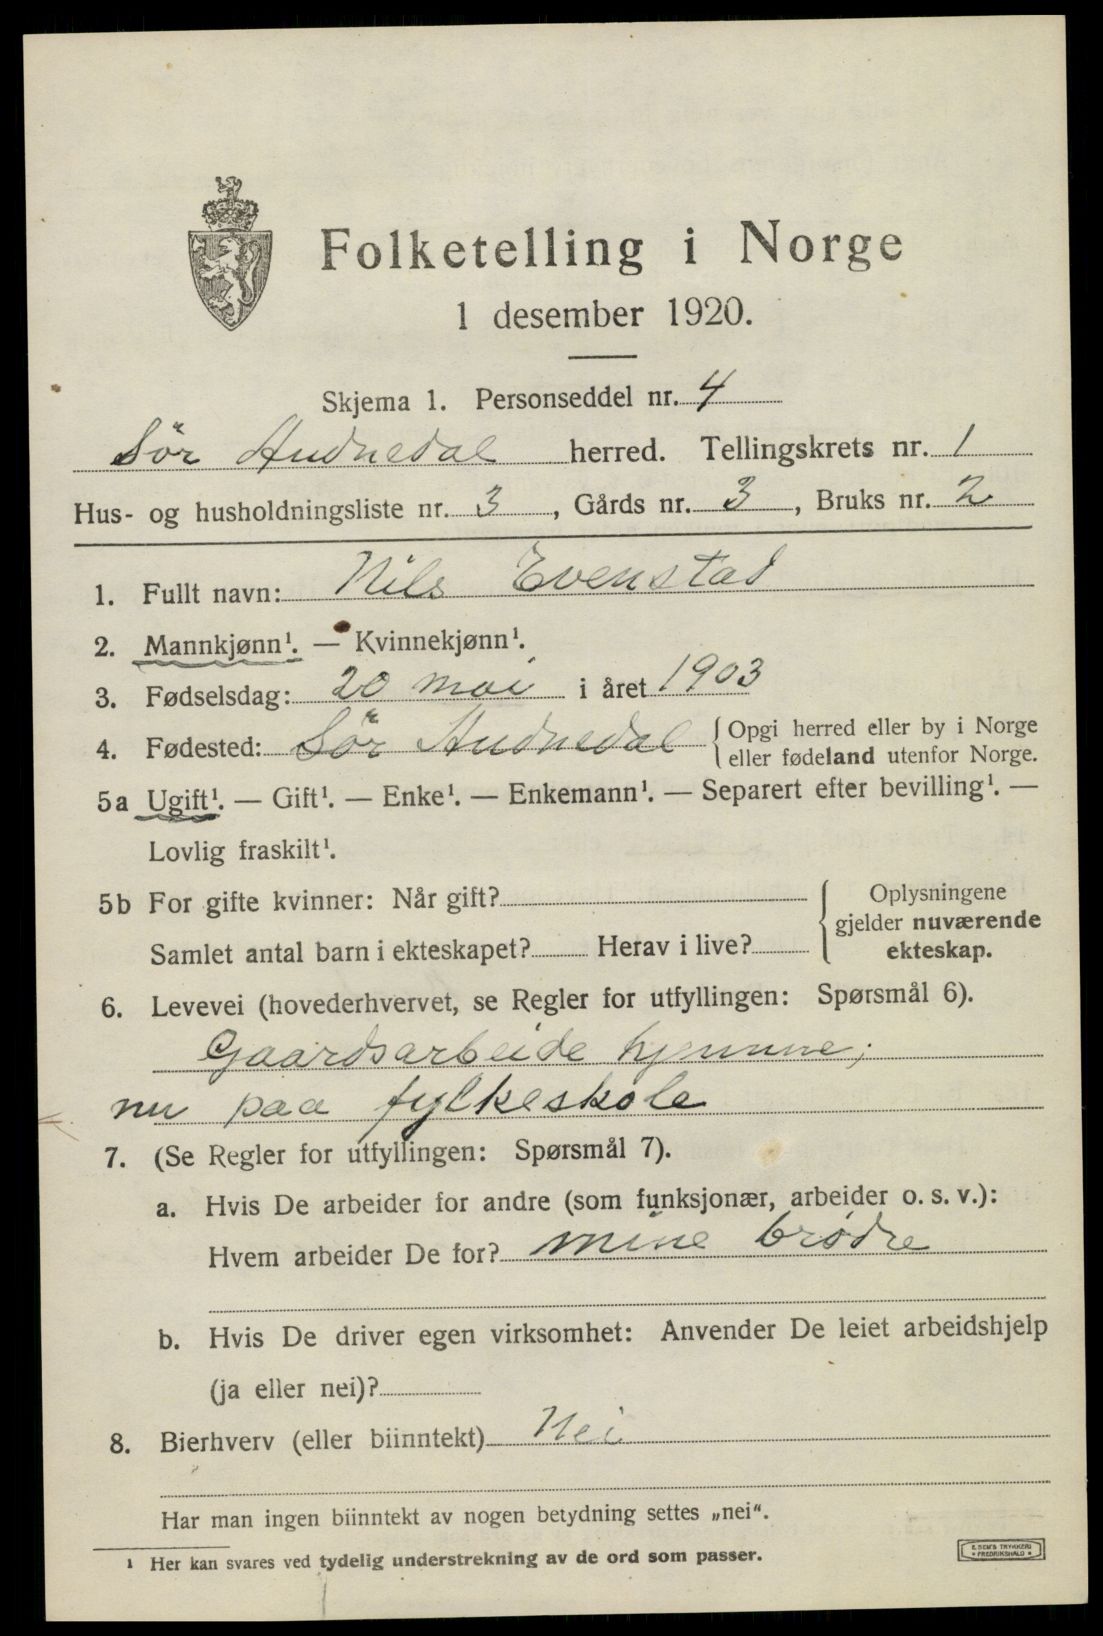 Folketelling i Norge
1 desember 1920.
Skjema 1. Personseddel nr. 4
Sör Audnedal herred. Tellingskrets nr. 1
Hus- og husholdningsliste nr. 3, Gårds nr. 3, Bruks nr. 2
1. Fullt navn: Nils Evenstad
2. Mannkjønn¹. — Kvinnekjønn¹.
3. Fødselsdag: 20 mai i året 1903
4. Fødested: Sör Audnedal { Opgi herred eller by i Norge
eller fødeland utenfor Norge.
5a Ugift¹. — Gift¹. — Enke¹. — Enkemann¹. — Separert efter bevilling¹. —
Lovlig fraskilt¹.
5b For gifte kvinner: Når gift?
Samlet antal barn i ekteskapet? Herav i live?
{ Oplysningene
gjelder nuværende
ekteskap.
6. Levevei (hovederhvervet, se Regler for utfyllingen: Spørsmål 6).
Gaardsarbeide hjemme;
nu paa fylkeskole
7. (Se Regler for utfyllingen: Spørsmål 7).
a. Hvis De arbeider for andre (som funksjonær, arbeider o. s. v.):
Hvem arbeider De for? mine brödre
b. Hvis De driver egen virksomhet: Anvender De leiet arbeidshjelp
(ja eller nei)?
8. Bierhverv (eller biinntekt) Nei
Har man ingen biinntekt av nogen betydning settes „nei".
¹ Her kan svares ved tydelig understrekning av de ord som passer.
E. SEM'S TRYKKERI
FREDRIKSHALD